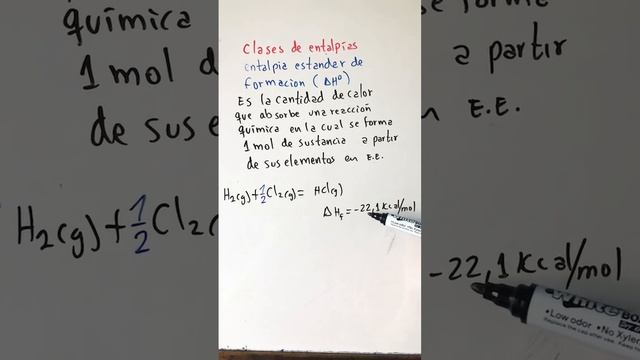 Clases de entalpías
Entalpia estandar de
formacion (ΔH°)
Es la cantidad de calor
que absorbe una reacción
química en la cual se forma
1 mol de sustancia a partir
de sus elementos en E.E.
H2(g) + 1/2 Cl2(g) = HCl(g)
ΔHf = -22,1 Kcal/mol
química
1 mol d
de sus
H2(g) + 1/2 Cl2(
se forme
a partir
n E.E.
-22,1 Kcal/mol
White BO
•Low odor •No Xyle